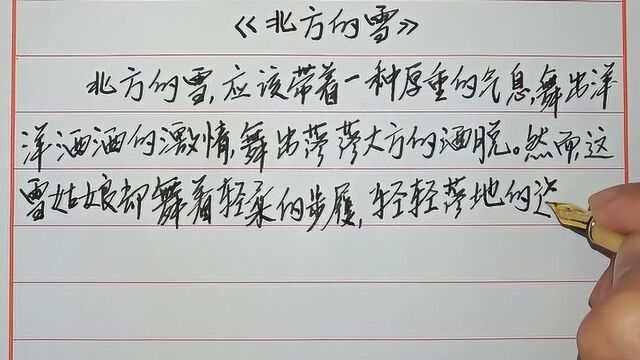 《北方的雪》
北方的雪,应该带着一种厚重的气息,舞出洋
洋洒洒的激情,舞出落落大方的洒脱。然而,这
雪姑娘却舞着轻柔的步履,轻轻落地的